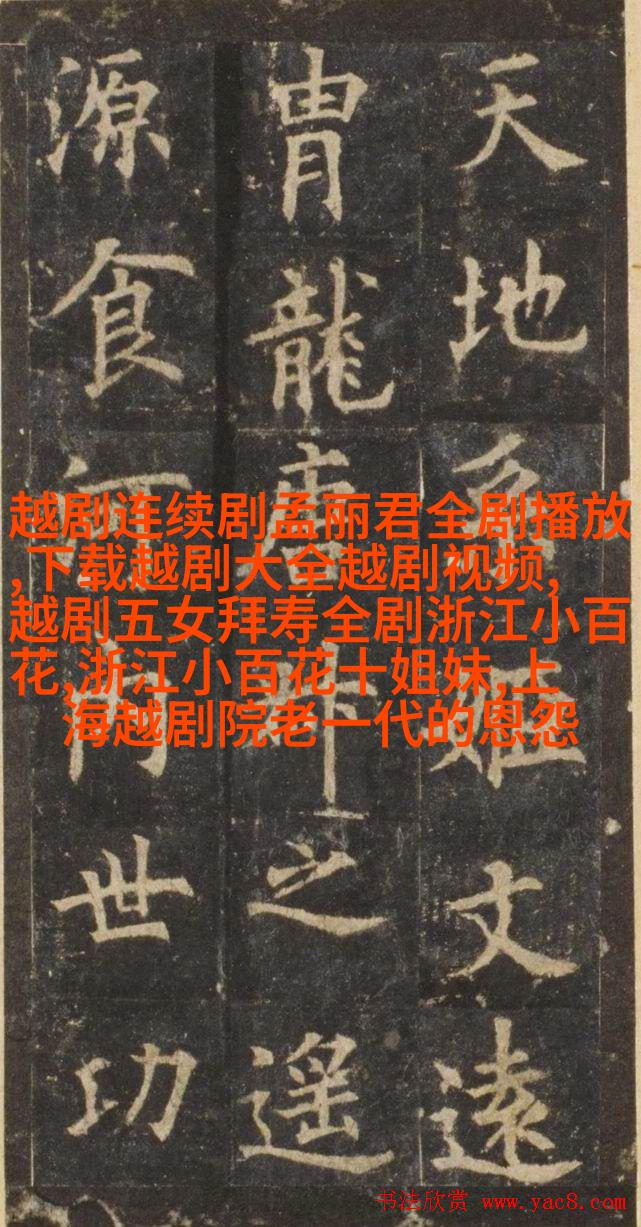 天地姬文遠
胄龍唐之遥
源食世功
越剧连续剧孟丽君全剧播放
,下载越剧大全越剧视频,
越剧五女拜寿全剧浙江小百
花,浙江小百花十姐妹,上
海越剧院老一代的恩怨
书法欣赏 www.yac8.com